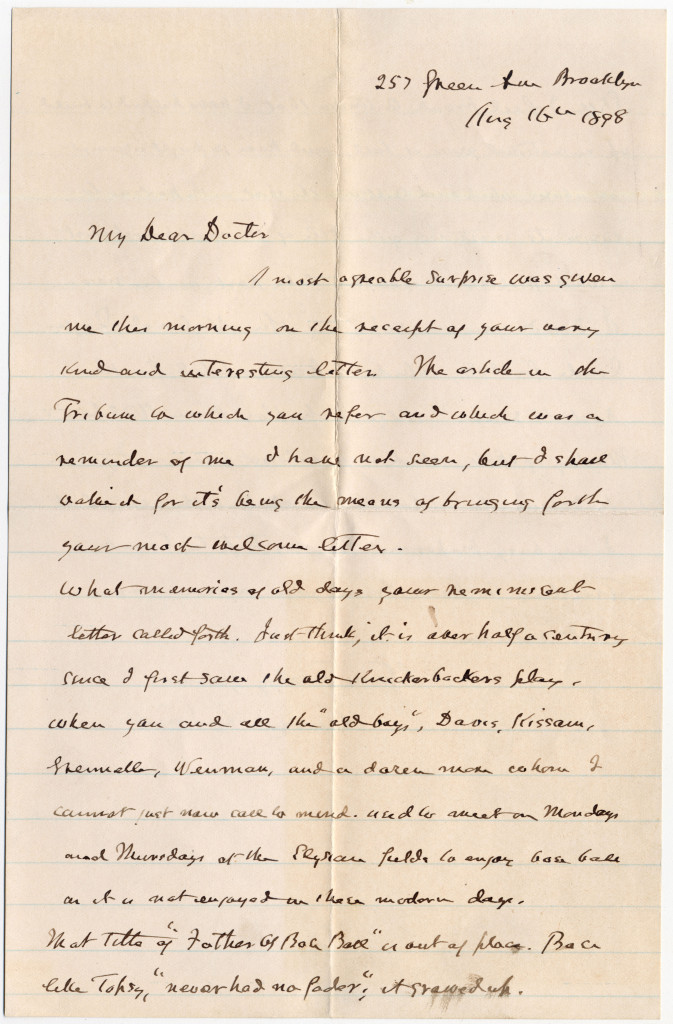 257 Greene Ave Brooklyn
Aug 16th 1898
My Dear Doctor
A most agreable surprise was given
me this morning on the receipt of your very
kind and interesting letter. The article in the
Tribune to which you refer and which was a
reminder of me I have not seen, but I shall
value it for it's being the means of bringing forth
your most welcome letter.
What memories of old days your reminiscent
letter called forth. Just think, it is over half a century
since I first saw the old Knickerbockers play,
when you and all the "old boys", Davis, Kissam,
Grenelle, Wenman, and a dozen more whom I
cannot just now call to mind. used to meet on Mondays
and Thursdays at the Elysian fields to enjoy base ball
as it is not enjoyed in these modern days.
That title of "Father of Base Ball" is out of place. Base
like Topsy, "never had no fader"; it growed up.